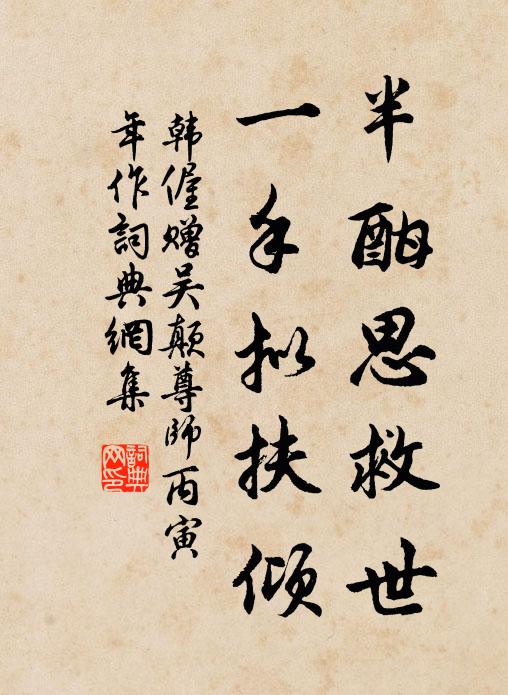 半酣思救世
一手拟扶倾
韩偓赠吴颠尊師丙寅
年作詞典網集
詞典网印